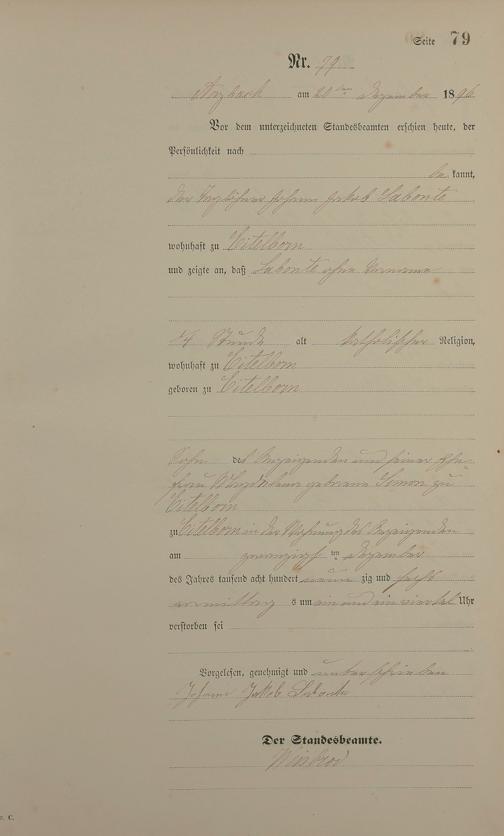 Seite 79
Nr. 79
Arzbach am 20ten Dezember 1896
Vor dem unterzeichneten Standesbeamten erschien heute, der
Persönlichkeit nach
be kannt,
der Tagelöhner Johann Jakob Labonte
wohnhaft zu Eitelborn
und zeigte an, daß Labonte ohne Vorname
1/4 Stunde alt katholischer Religion,
wohnhaft zu Eitelborn
geboren zu Eitelborn
Sohn des Anzeigenden und seiner Ehe-
frau Magdalena geborene Simon zu
Eitelborn
zu Eitelborn in der Wohnung des Anzeigenden
am zwanzigsten Dezember
des Jahres tausend acht hundert neun zig und sechs
vormittags um ein und ein viertel Uhr
verstorben sei
Vorgelesen, genehmigt und unterschrieben
Johann Jakob Labonte
Der Standesbeamte.